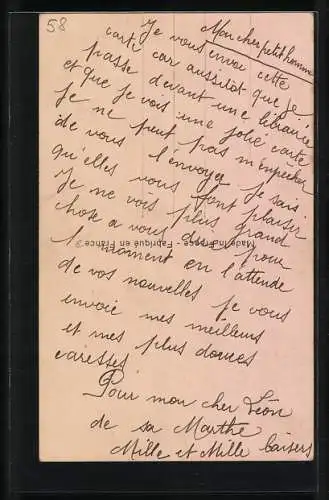 58
Mon cher petit homme
Je vous envoi cette
carte car aussitôt que je
passe devant une librairie
et que je vois une jolie carte
je ne peut pas m'empecher
de vous l'envoyer je sais
qu'elles vous font plaisir
Je ne vois plus grand
chose a vous dire pour
l'moment en l'attende
de vos nouvelles je vous
envoie mes meilleurs
et mes plus douces
caresses
Pour mon cher Léon
de sa Marthe
Mille et Mille baisers
Made in France - Fabriqué en France